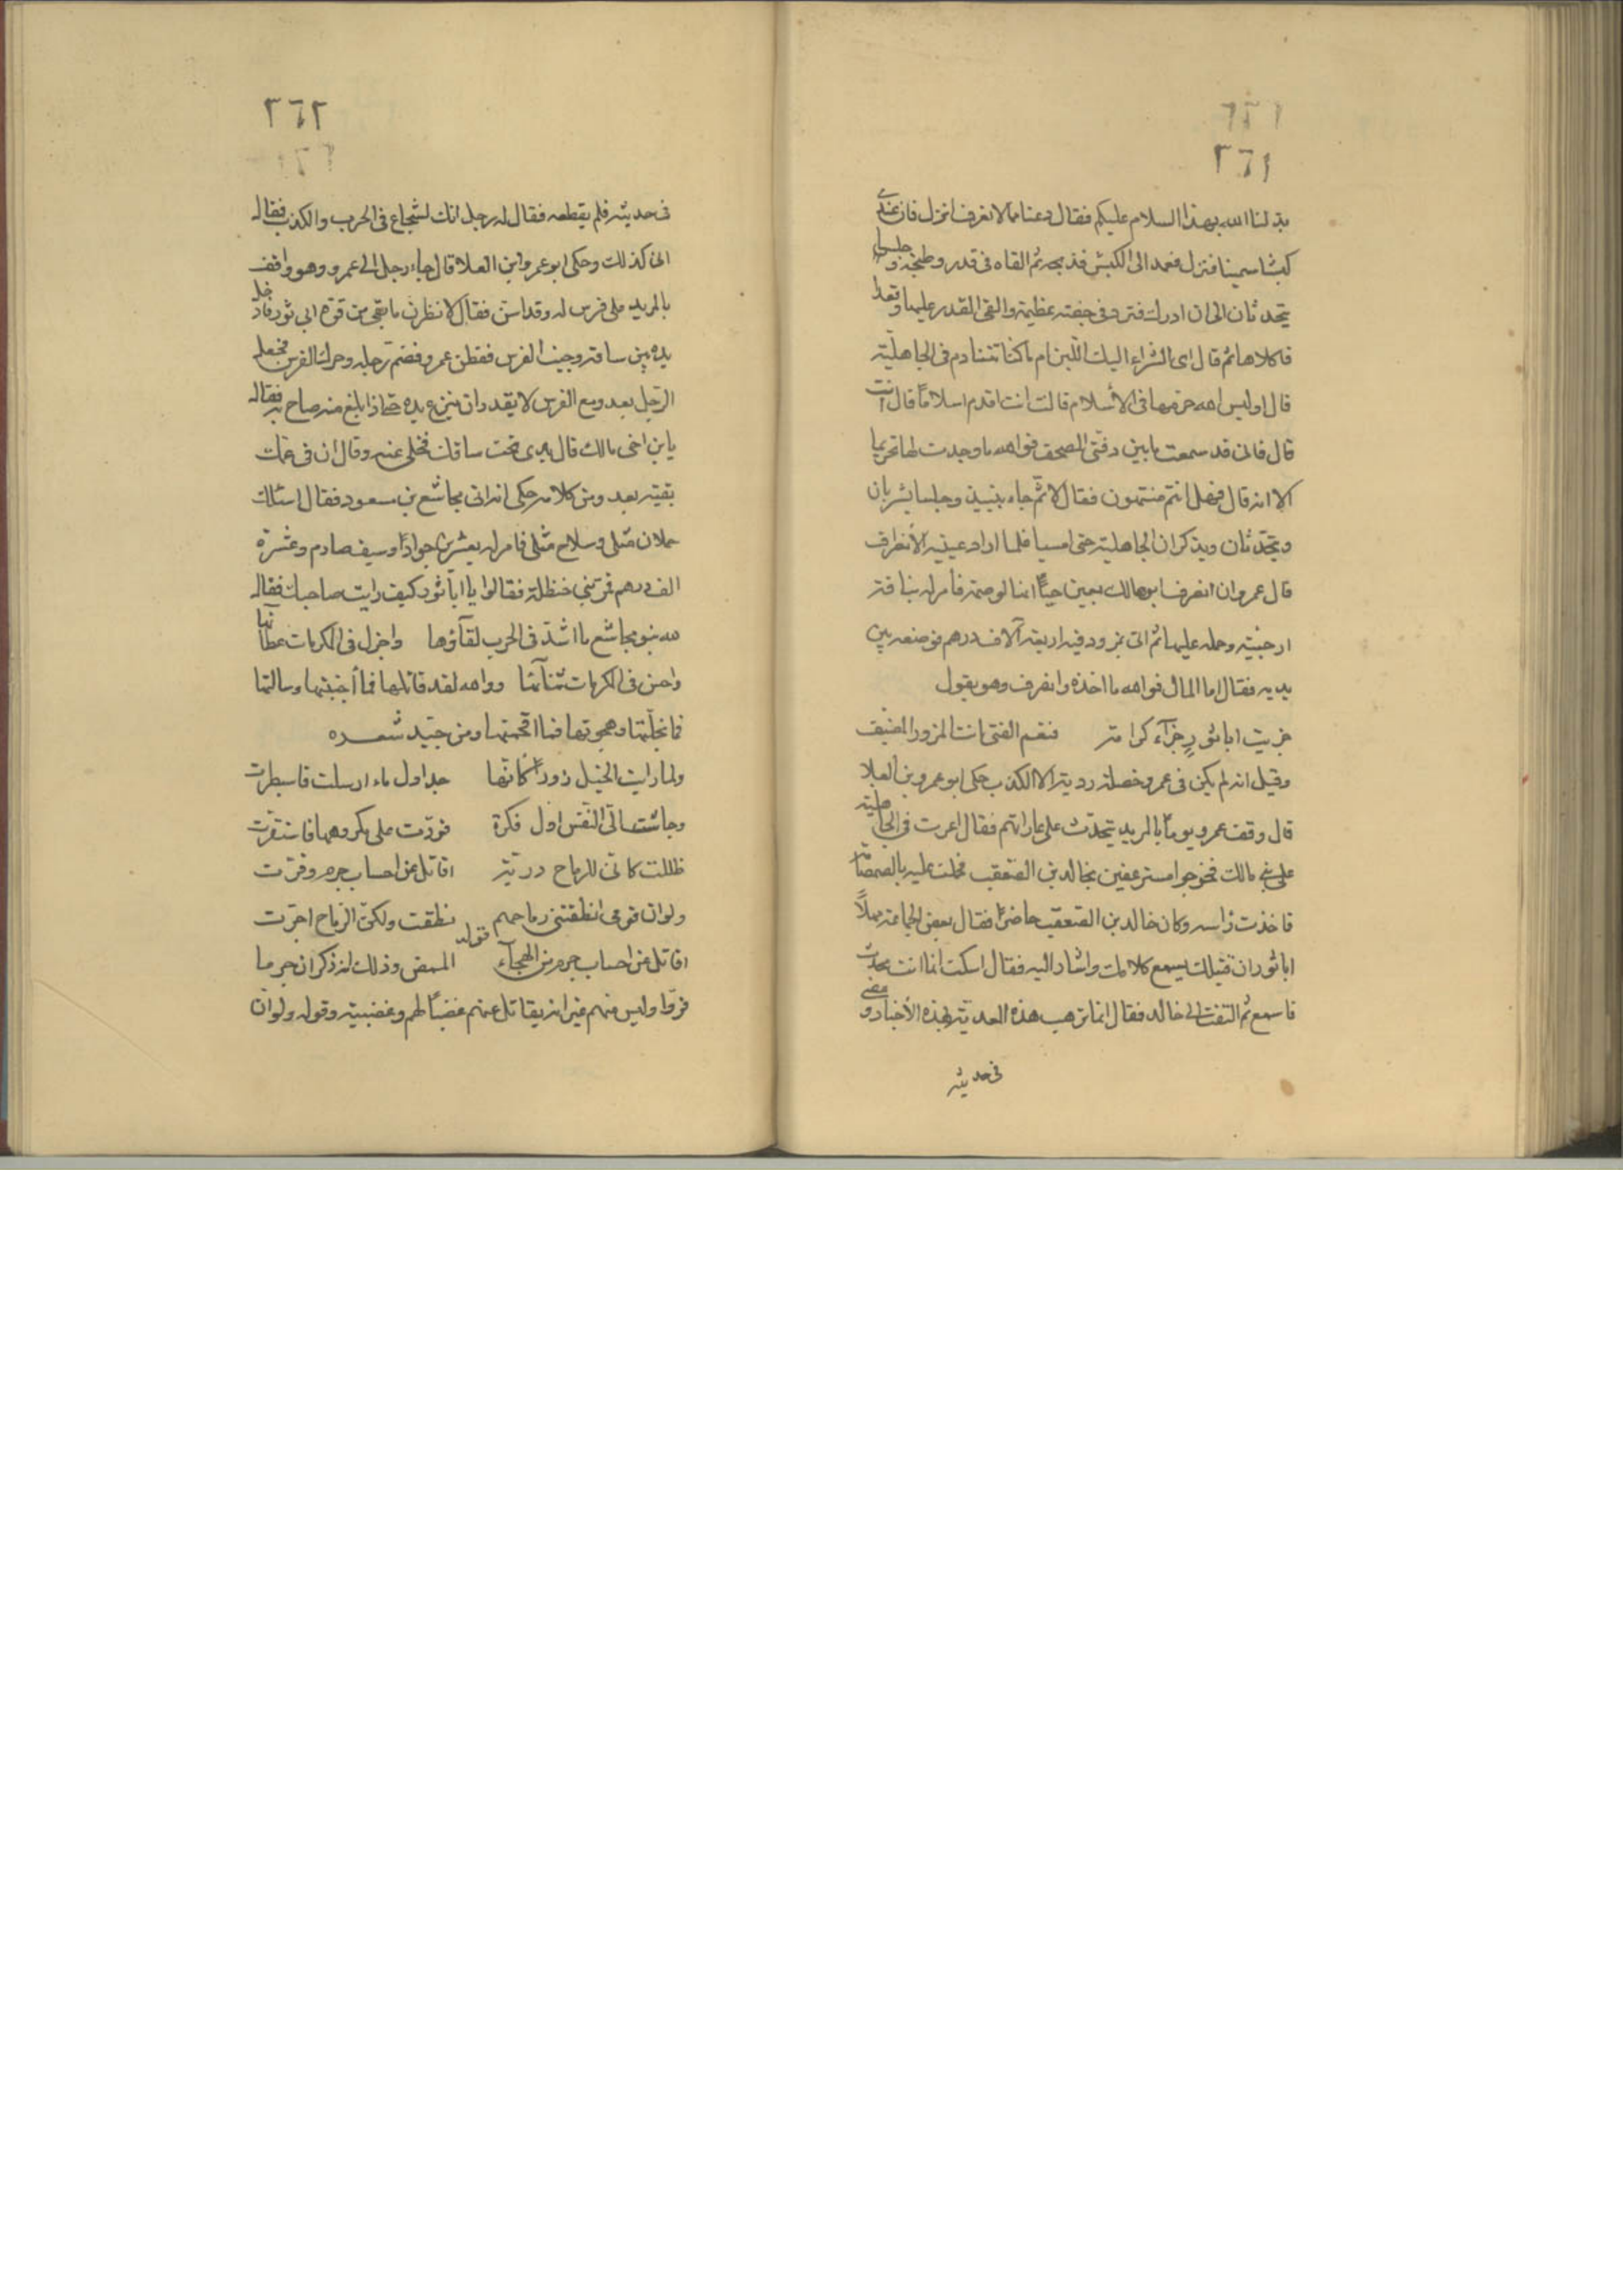 ٣٦١
بدلنا الله بهذا السلام عليكم فقال دعنا مما لا نعرف انزل فان عندي
كبشا سمينا فنزل فعمد الى الكبش فذبحه ثم القاه في قدر وطبخه وجلسا
يتحدثان الى ان ادرك فثرد في جفنة عظيمة والقى القدر عليها وقعدا
فاكلاها ثم قال اي الشراب اليك اللبن ام ما كنا نتنادم في الجاهلية
قال اوليس الله حرمها في الأسلام قالت انت اقدم اسلاماً قال انت
قال فاني قد سمعت ما بين دفتي المصحف فوالله ما وجدت لها تحريما
الا انه قال فهل انتم منتهون فقال لا ثم جاء بنبيذ وجلسا يشربان
ويتحدثان ويذكران الجاهلية حتى امسيا فلما اراد عيينة الأنصراف
قال عمرو ان انصرف ابو مالك بعين حباً انها لوصمة فأمر له بناقة
ارحبية وحمله عليها ثم اتى بمزود فيه اربعة آلاف درهم فوضعه بين
يديه فقال اما المال فوالله ما اخذه وانصرف وهو يقول
جزيت ابا ثور جزآء كرامة فنعم الفتى انت المزور المضيف
وقيل انه لم يكن في عمرو خصلة ردية الا الكذب حكى ابو عمرو بن العلا
قال وقف عمرو يوماً بالمربد يتحدث على عاداتهم فقال اغرت في الجاهلية
على بني مالك فخرجوا مسترعفين بخالد بن الصقعب فحملت عليه بالصمصامة
فاخذت راسه وكان خالد بن الصقعب حاضراً فقال بعض الجماعة مهلاً
ابا ثور ان قتيلك يسمع كلامك واشار اليه فقال اسكت انما انت محدث
فاسمع ثم التفت الى خالد فقال انما نرهب هذه المعدية بهذه الأخبار ومضى
في حديثه
٣٦٢
في حديثه فلم يقطعه فقال له رجل انك لشجاع في الحرب والكذب فقال
اني كذلك وحكى ابو عمرو ابن العلا قال جاء رجل الى عمرو وهو واقف
بالمربد على فرس له وقد اسن فقال لا نظرن ما بقي من قوة ابي ثور فادخل
يده بين ساقه وجنب الفرس ففطن عمرو فضم رجله وحرك الفرس فجعل
الرجل يعدو مع الفرس لا يقدر ان ينزع يده حتى اذا بلغ منه صاح به فقال
يا بن اخي مالك قال يدي تحت ساقك فخلى عنه وقال ان في عمك
بقية بعد ومن كلامه حكى انه اتى مجاشع بن مسعود فقال اسئلك
حملان مثلي وسلاح مثلي فامر له بعشرين جواداً وسيف صارم وعشرة
الف درهم فمر ببني حنظلة فقالوا يا ابا ثور كيف رايت صاحبك فقال
لله بنو مجاشع ما اشد في الحرب لقآؤها واجزل في الكربات عطآئها
واحسن في المكرمات ثنآئها ووالله لقد قاتلها فما أجبنتها وسالتها
فما نجلتها وهجوتها فما افحمتها ومن جيد شعره
ولما رايت الخيل زوراً كانها جداول ماء ارسلت فاسبطرت
وجاشت الى النفس اول فكرة فردت على مكروهها فاستقرت
ظللت كاني للرماح دريئة اقاتل عن احساب جرم وفرت
ولو ان قومي انطقتني رماحهم نطقت ولكن الرماح اجرت
قوله
اقاتل عن احساب جرم من الهجآء الممض وذلك انه ذكر ان جرما
فروا وليس منهم غير انه يقاتل عنهم غضباً لهم وغضبية وقوله ولو ان